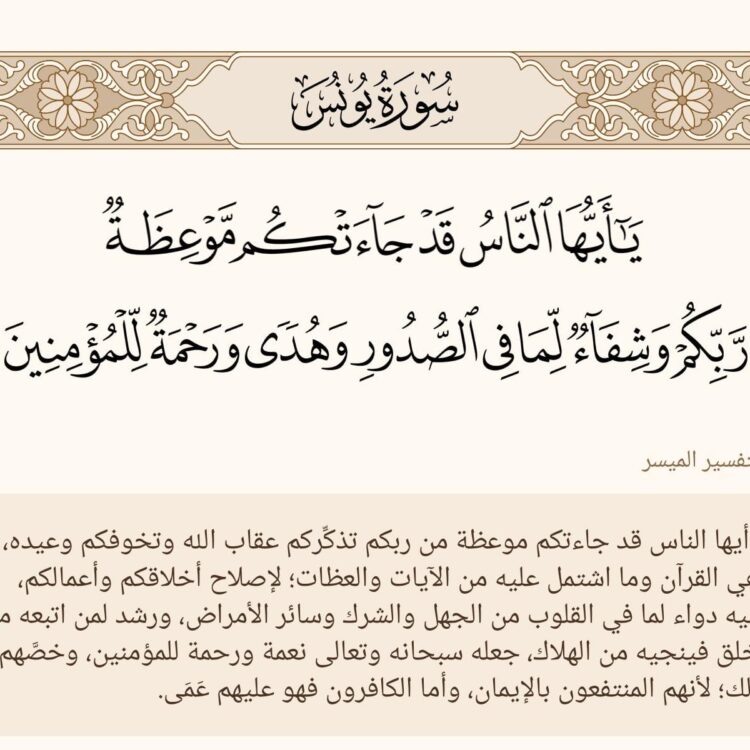 سُورَةُ يُونُسَ
يَـٰٓأَيُّهَا ٱلنَّاسُ قَدْ جَآءَتْكُم مَّوْعِظَةٌ
رَّبِّكُمْ وَشِفَآءٌ لِّمَا فِى ٱلصُّدُورِ وَهُدًى وَرَحْمَةٌ لِّلْمُؤْمِنِينَ
تفسير الميسر
أيها الناس قد جاءتكم موعظة من ربكم تذكِّركم عقاب الله وتخوفكم وعيده،
هي القرآن وما اشتمل عليه من الآيات والعظات؛ لإصلاح أخلاقكم وأعمالكم،
يه دواء لما في القلوب من الجهل والشرك وسائر الأمراض، ورشد لمن اتبعه م
خلق فينجيه من الهلاك، جعله سبحانه وتعالى نعمة ورحمة للمؤمنين، وخصَّهم
لك؛ لأنهم المنتفعون بالإيمان، وأما الكافرون فهو عليهم عَمَى.